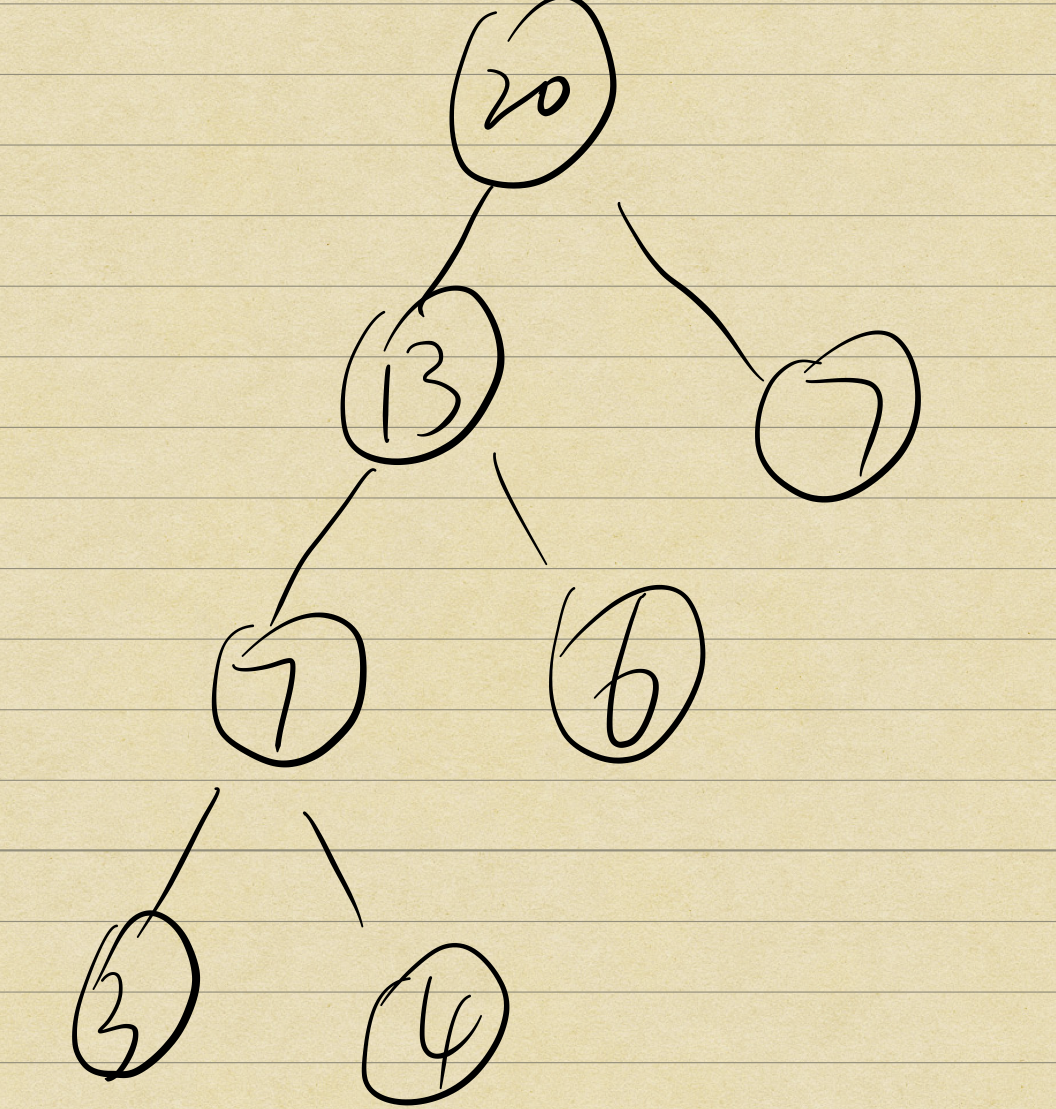 20
13
7
7
6
3
4